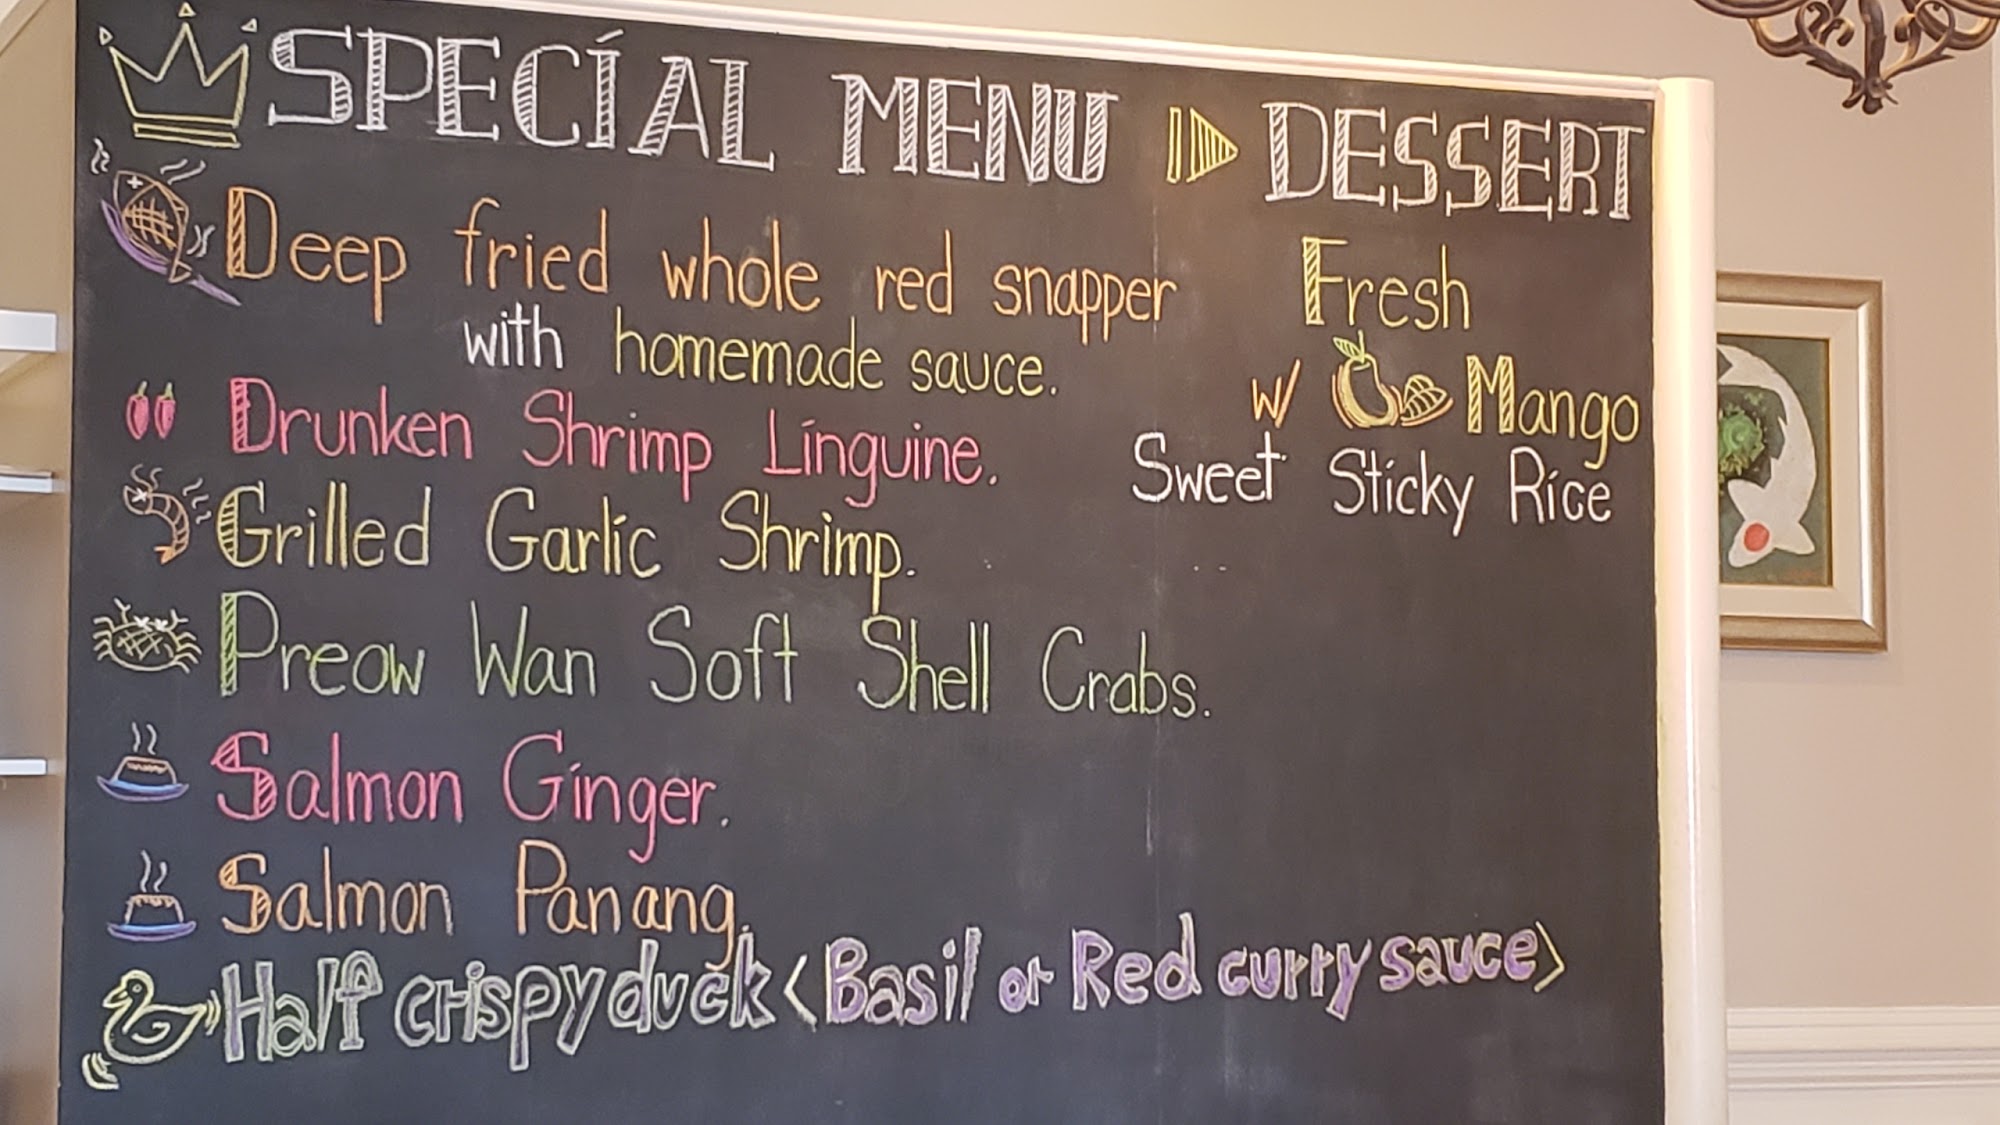 SPECÍAL MENU DESSERT
Deep fried whole red snapper
with homemade sauce.
Drunken Shrimp Linguine.
Grilled Garlic Shrimp.
Preow Wan Soft Shell Crabs.
Salmon Ginger.
Salmon Panang.
Half crispy duck <Basil or Red curry sauce>
Fresh
w/ Mango
Sweet Sticky Rice